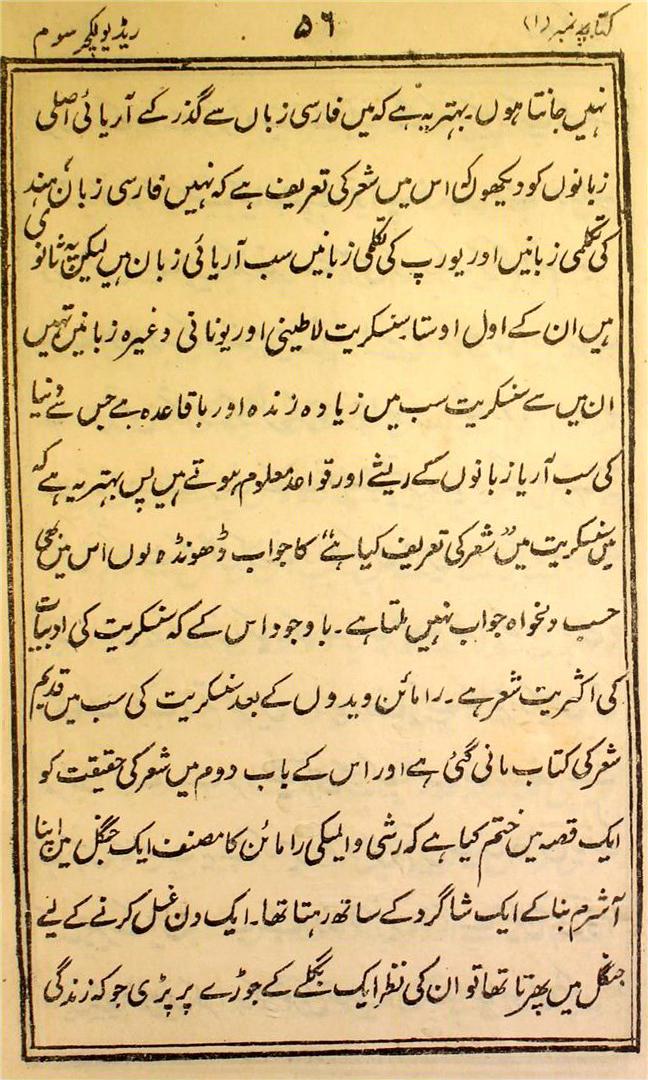 کتابچہ نمبر (۱) ۵۶ ریڈیو لکچر سوم
نہیں جانتا ہوں۔ بہتر یہ ہے کہ میں فارسی زباں سے گذر کے آریائی اصلی
زبانوں کو دیکھوں کہ اس میں شعر کی تعریف ہے کہ نہیں فارسی زبان ہند
کی تکلمی زبانیں اور یورپ کی تکلمی زبانیں سب آریائی زبان ہیں لیکن یہ ثانوی
ہیں ان کے اول اوستا سنسکریت لاطینی اور یونانی وغیرہ زبانیں تھیں
ان میں سے سنسکریت سب میں زیادہ زندہ اور باقاعدہ ہے جس سے دنیا
کی سب آریا زبانوں کے ریشے اور قواعد معلوم ہوتے ہیں پس بہتر یہ ہے کہ
میں سنسکریت میں "شعر کی تعریف کیا ہے" کا جواب ڈھونڈہ لوں اس میں بھی
حسب دلخواہ جواب نہیں ملتا ہے۔ باوجود اس کے کہ سنسکریت کی ادبیات
کی اکثریت شعر ہے۔ رامائن ویدوں کے بعد سنسکریت کی سب میں قدیم
شعر کی کتاب مانی گئی ہے اور اس کے باب دوم میں شعر کی حقیقت کو
ایک قصہ میں ختم کیا ہے کہ رشی والمیکی رامائن کا مصنف ایک جنگل میں اپنا
آشرم بنا کے ایک شاگرد کے ساتھ رہتا تھا۔ ایک دن غسل کرنے کے لیے
جنگل میں پھرتا تھا تو ان کی نظر ایک بگلے کے جوڑے پر پڑی جو کہ زندگی